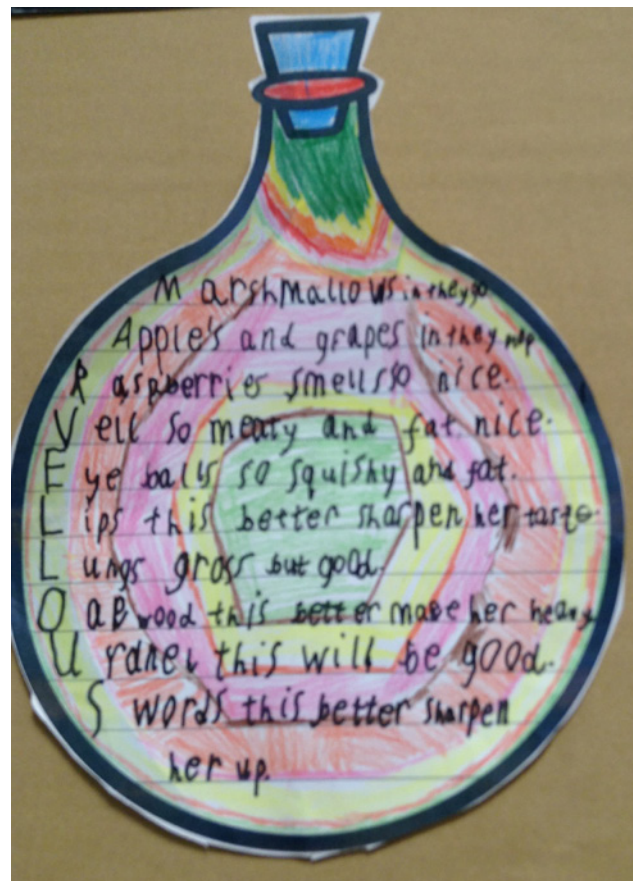 Marshmallows in they go
Apple's and grapes in they
Raspberries smells so nice.
Vell so meaty and fat nice.
Eye balls so squishy and fat.
Lips this better sharpen her taste.
Lungs gross but good.
Oak wood this better make her heavy
Urdnel this will be good.
Swords this better sharpen
her up.